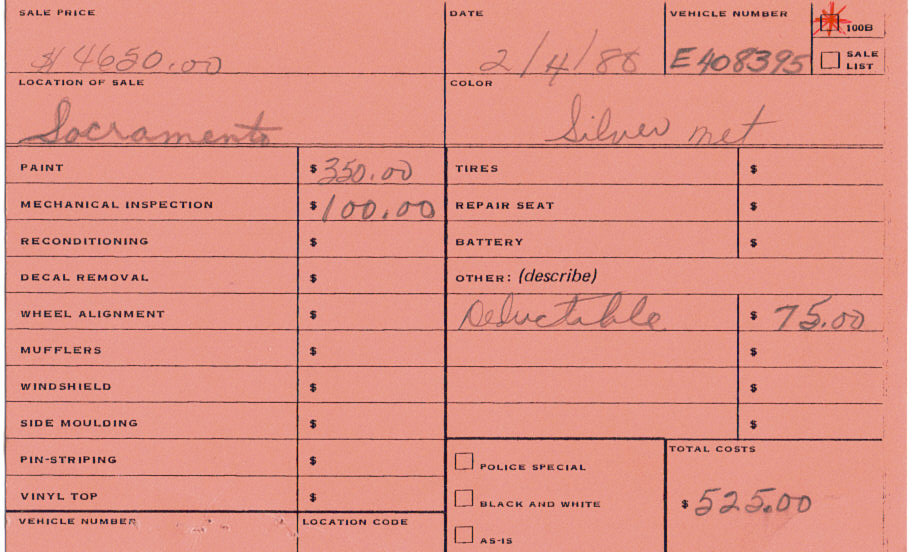 SALE PRICE DATE VEHICLE NUMBER 100B
$4650.00 2/4/88 E408395 SALE LIST
LOCATION OF SALE COLOR
Sacramento Silver met
PAINT $350.00 TIRES $
MECHANICAL INSPECTION $100.00 REPAIR SEAT $
RECONDITIONING $ BATTERY $
DECAL REMOVAL $ OTHER: (describe)
WHEEL ALIGNMENT $ Deductable $ 75.00
MUFFLERS $ $
WINDSHIELD $ $
SIDE MOULDING $ $
PIN-STRIPING $ POLICE SPECIAL TOTAL COSTS
VINYL TOP $ BLACK AND WHITE $525.00
VEHICLE NUMBER LOCATION CODE AS-IS